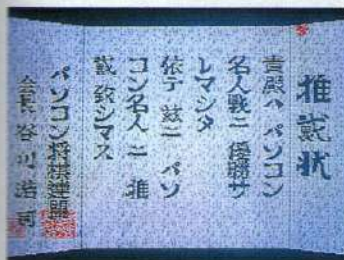 推戴状
貴殿ハ パソコン
名人戦ニ 優勝サ
レマシタ
依テ 玆ニ パソ
コン名人 ニ 推
戴 致シマス
パソコン将棋連盟
会長 谷川浩司